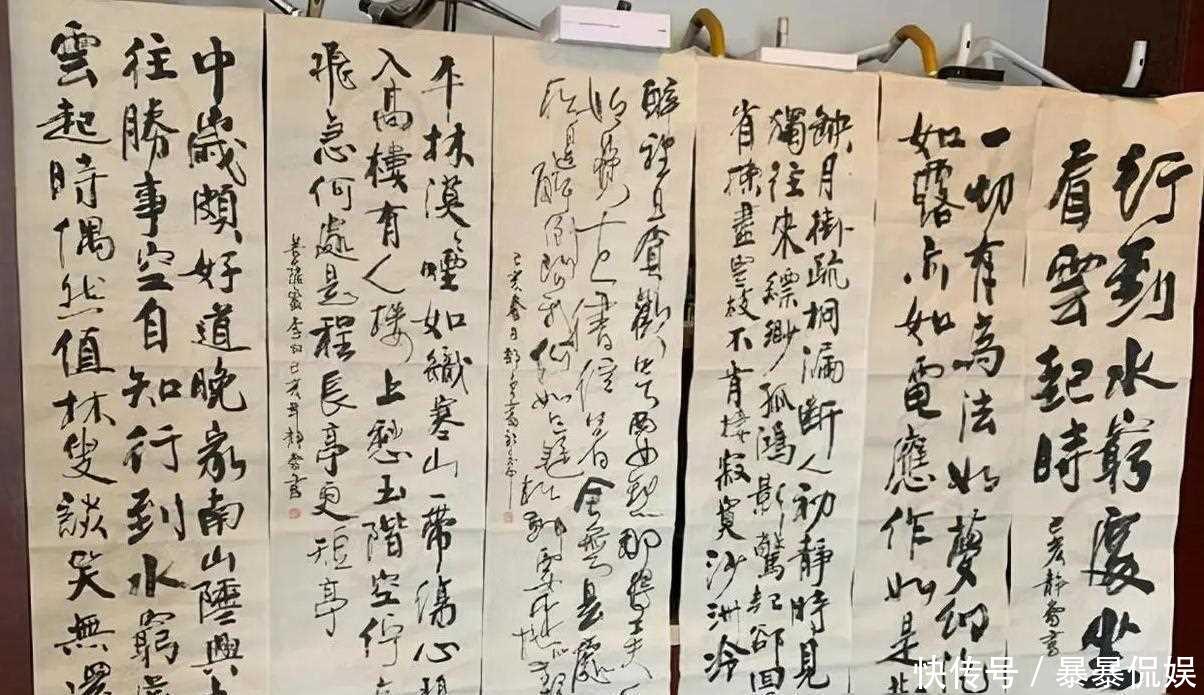 行到水窮處坐
看雲起時
己亥靜齋書
一切有為法如夢幻泡
如露亦如電應作如是
缺月掛疏桐漏斷人初靜時見
獨往來縹緲孤鴻影驚起卻回
省揀盡寒枝不肯棲寂寞沙洲冷
醉裡且貪歡笑要愁那得工夫
古人書信著全無是處
己亥春日
平林漠々煙如織寒山一帶傷心碧
入高樓有人樓上愁玉階空佇
飛急何處是程長亭更短亭
菩薩蠻李白己亥年靜齋書
中歲頗好道晚家南山陲興
往勝事空自知行到水窮處
雲起時偶然值林叟談笑無還
快传号 / 暴暴侃娱